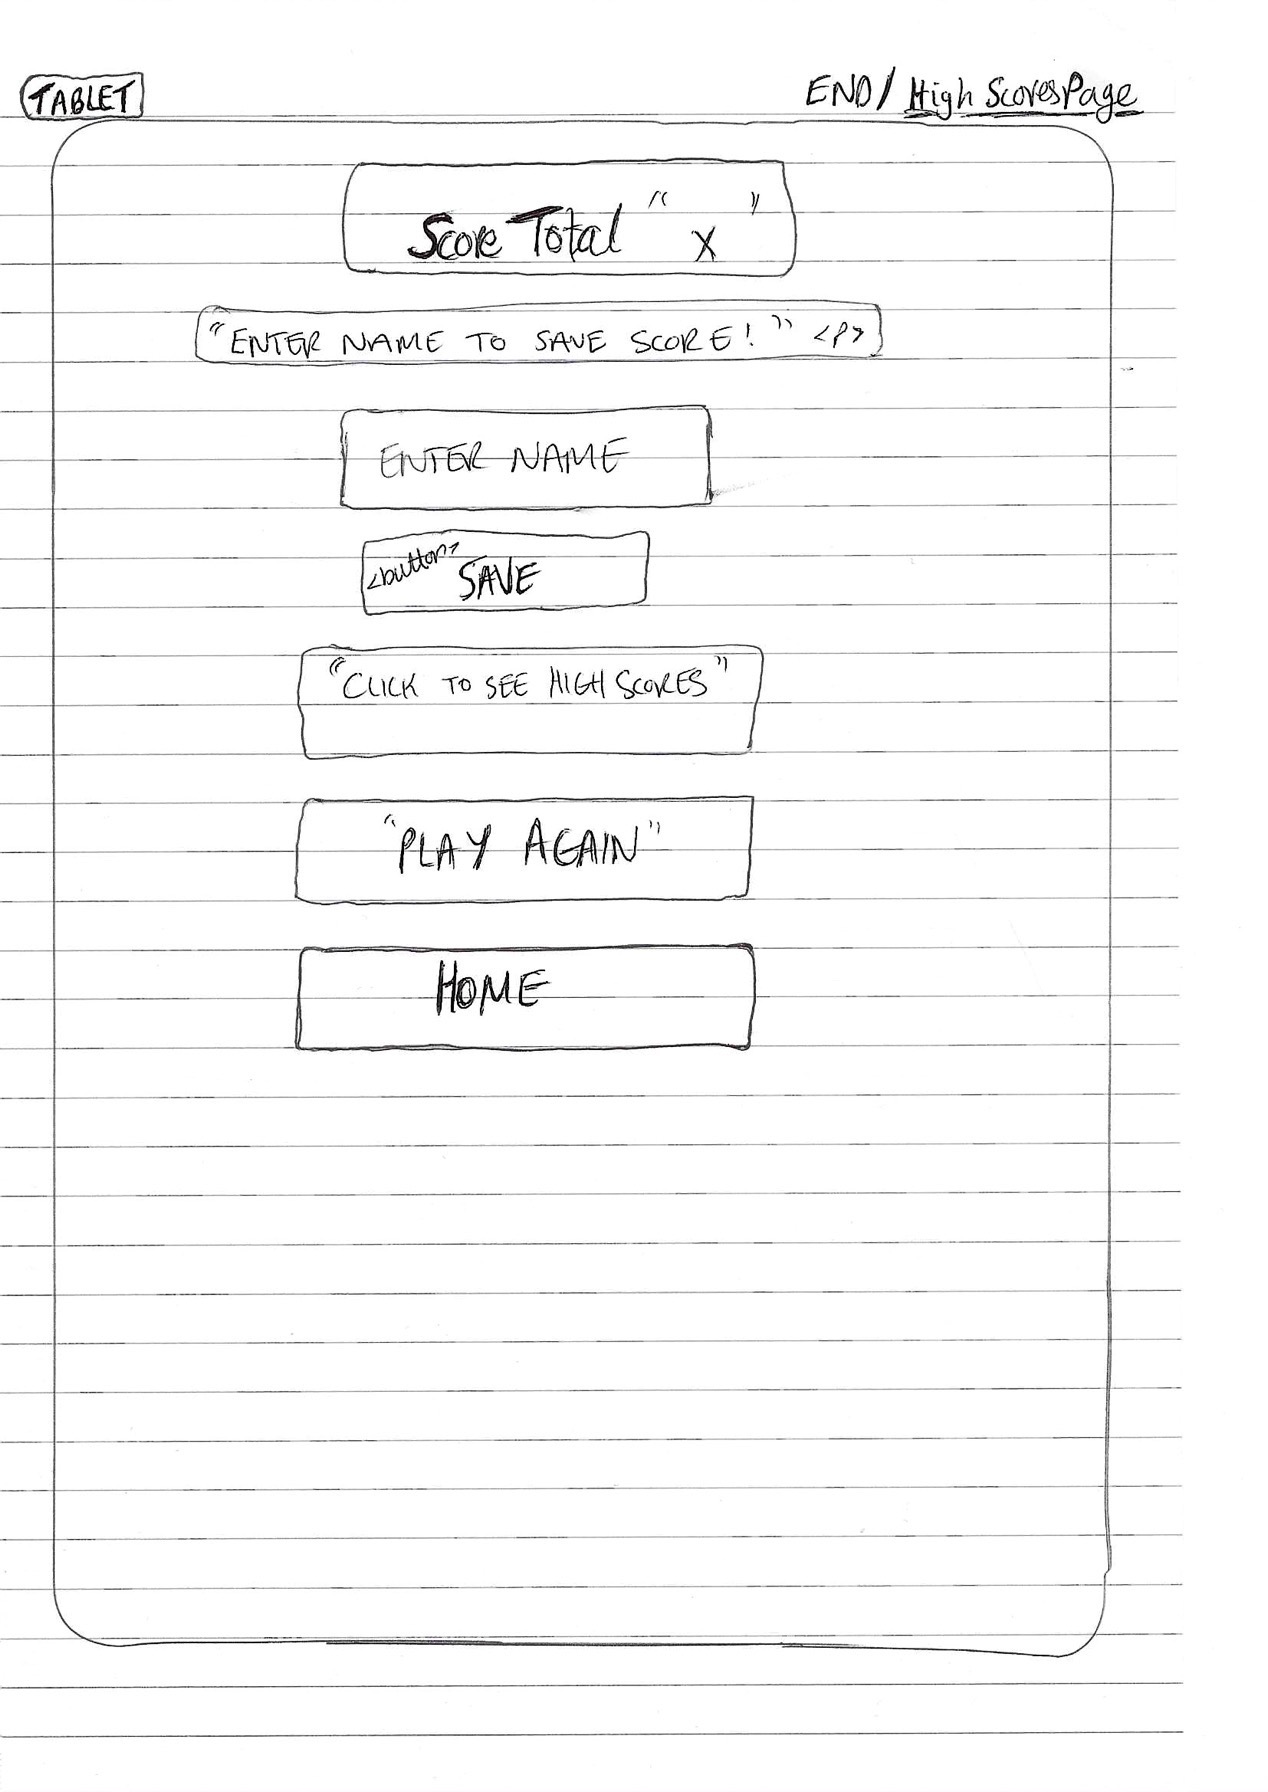 TABLET
END/ High Scores Page
Score Total " X "
"ENTER NAME TO SAVE SCORE!" <p>
ENTER NAME
<button> SAVE
"CLICK TO SEE HIGH SCORES"
"PLAY AGAIN"
HOME